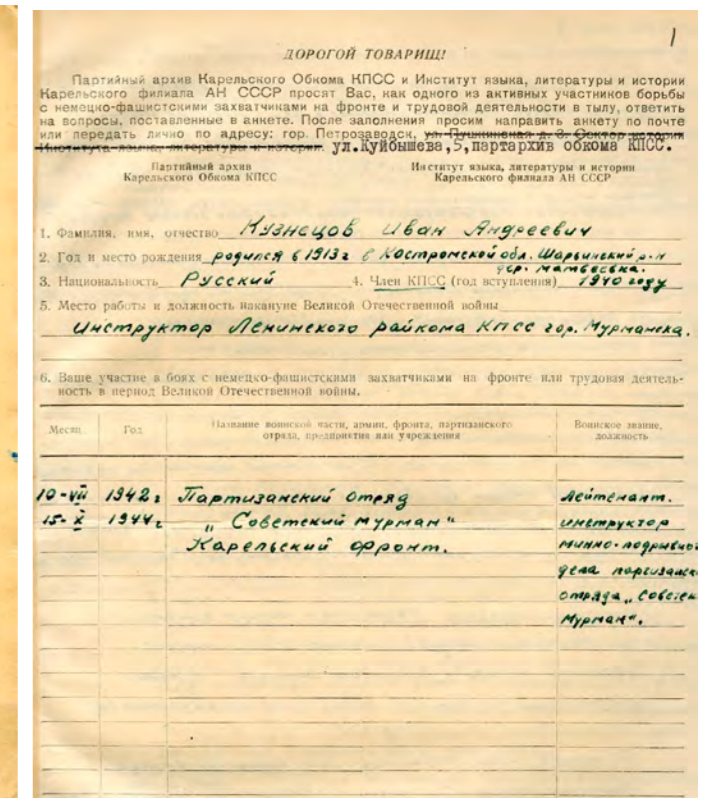 1
ДОРОГОЙ ТОВАРИЩ!
Партийный архив Карельского Обкома КПСС и Институт языка, литературы и истории
Карельского филиала АН СССР просят Вас, как одного из активных участников борьбы
с немецко-фашистскими захватчиками на фронте и трудовой деятельности в тылу, ответить
на вопросы, поставленные в анкете. После заполнения просим направить анкету по почте
или передать лично по адресу: гор. Петрозаводск, ул. Пушкинская д. 3. Сектор истории
Института языка, литературы и истории. ул.Куйбышева,5,партархив обкома КПСС.
Партийный архив Институт языка, литературы и истории
Карельского Обкома КПСС Карельского филиала АН СССР
1. Фамилия, имя, отчество Кузнецов Иван Андреевич
2. Год и место рождения родился в 1913г в Костромской обл. Шарьинский р-н
дер. Матвеевка.
3. Национальность Русский 4. Член КПСС (год вступления) 1940 году
5. Место работы и должность накануне Великой Отечественной войны
Инструктор Ленинского райкома КПСС гор. Мурманска.
6. Ваше участие в боях с немецко-фашистскими захватчиками на фронте или трудовая деятель-
ность в период Великой Отечественной войны.
Месяц Год Название воинской части, армии, фронта, партизанского Воинское звание,
отряда, предприятия или учреждения должность
10-VII 1942г Партизанский отряд Лейтенант.
15-X 1944г „Советский Мурман" инструктор
Карельский фронт. минно-подрывного
дела партизанск
отряда „Советск
Мурман".